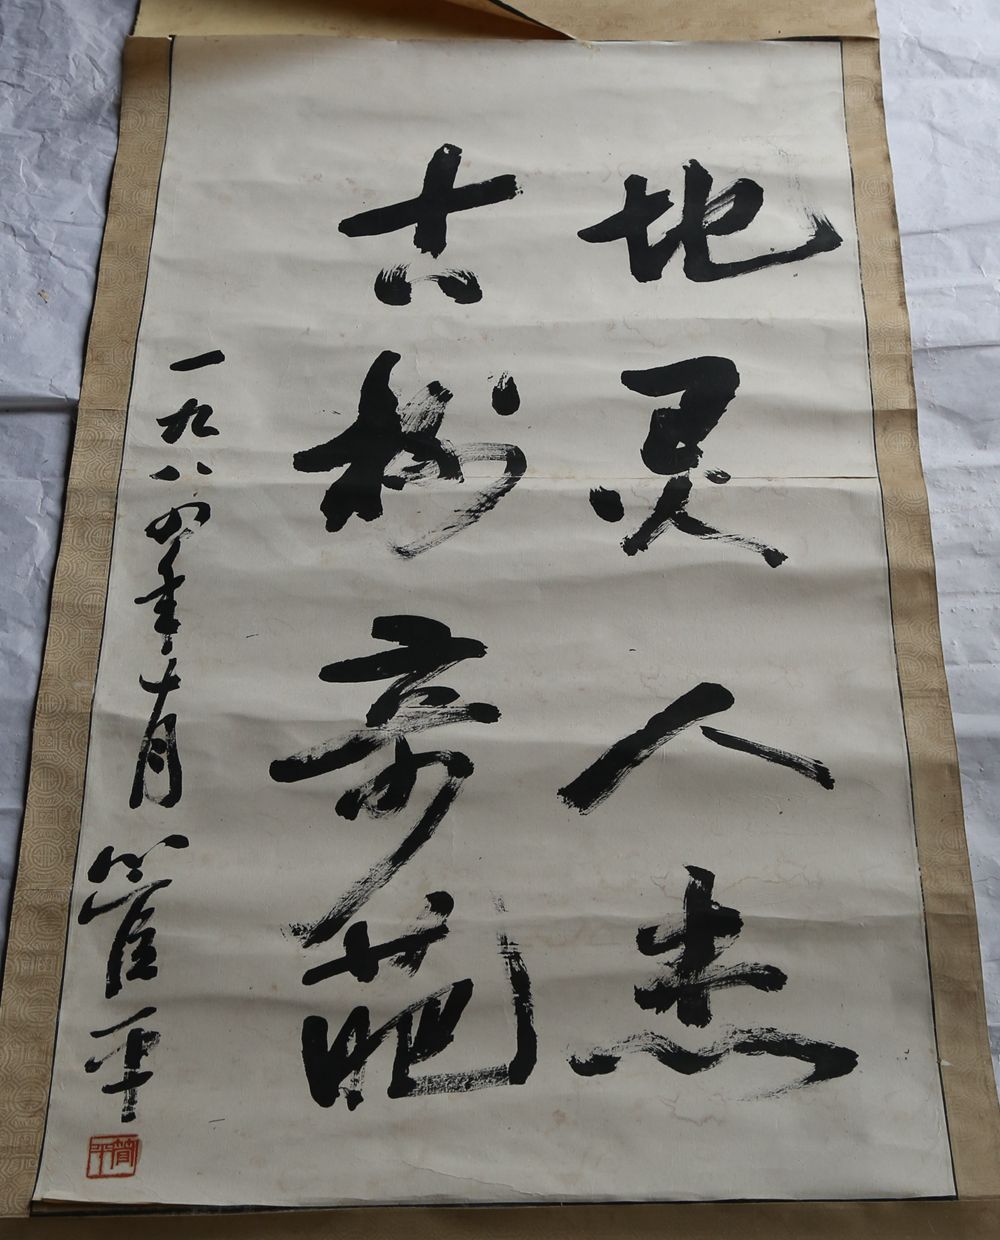 地灵人杰
古树奇葩
一九八四年十月 管平